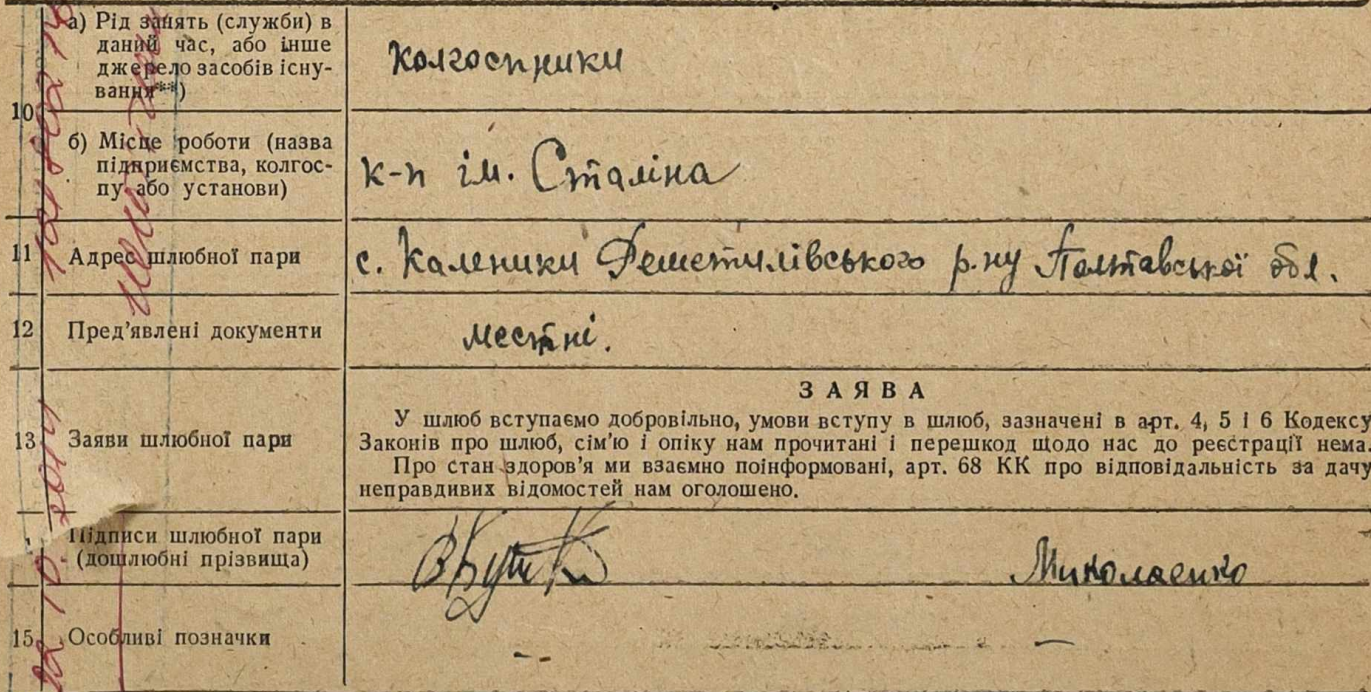 а) Рід занять (служби) в
даний час, або інше
джерело засобів існу-
вання**)
колгоспники
10
б) Місце роботи (назва
підприємства, колгос-
пу або установи)
к-п ім. Сталіна
11 Адрес шлюбної пари
с. Каленики Решетилівського р-ну Полтавської обл.
12 Пред'явлені документи
местні.
13 Заяви шлюбної пари
ЗАЯВА
У шлюб вступаємо добровільно, умови вступу в шлюб, зазначені в арт. 4, 5 і 6 Кодексу
Законів про шлюб, сім'ю і опіку нам прочитані і перешкод щодо нас до реєстрації нема.
Про стан здоров'я ми взаємно поінформовані, арт. 68 КК про відповідальність за дачу
неправдивих відомостей нам оголошено.
Підписи шлюбної пари
(дошлюбні прізвища)
Миколаенко
15 Особливі позначки